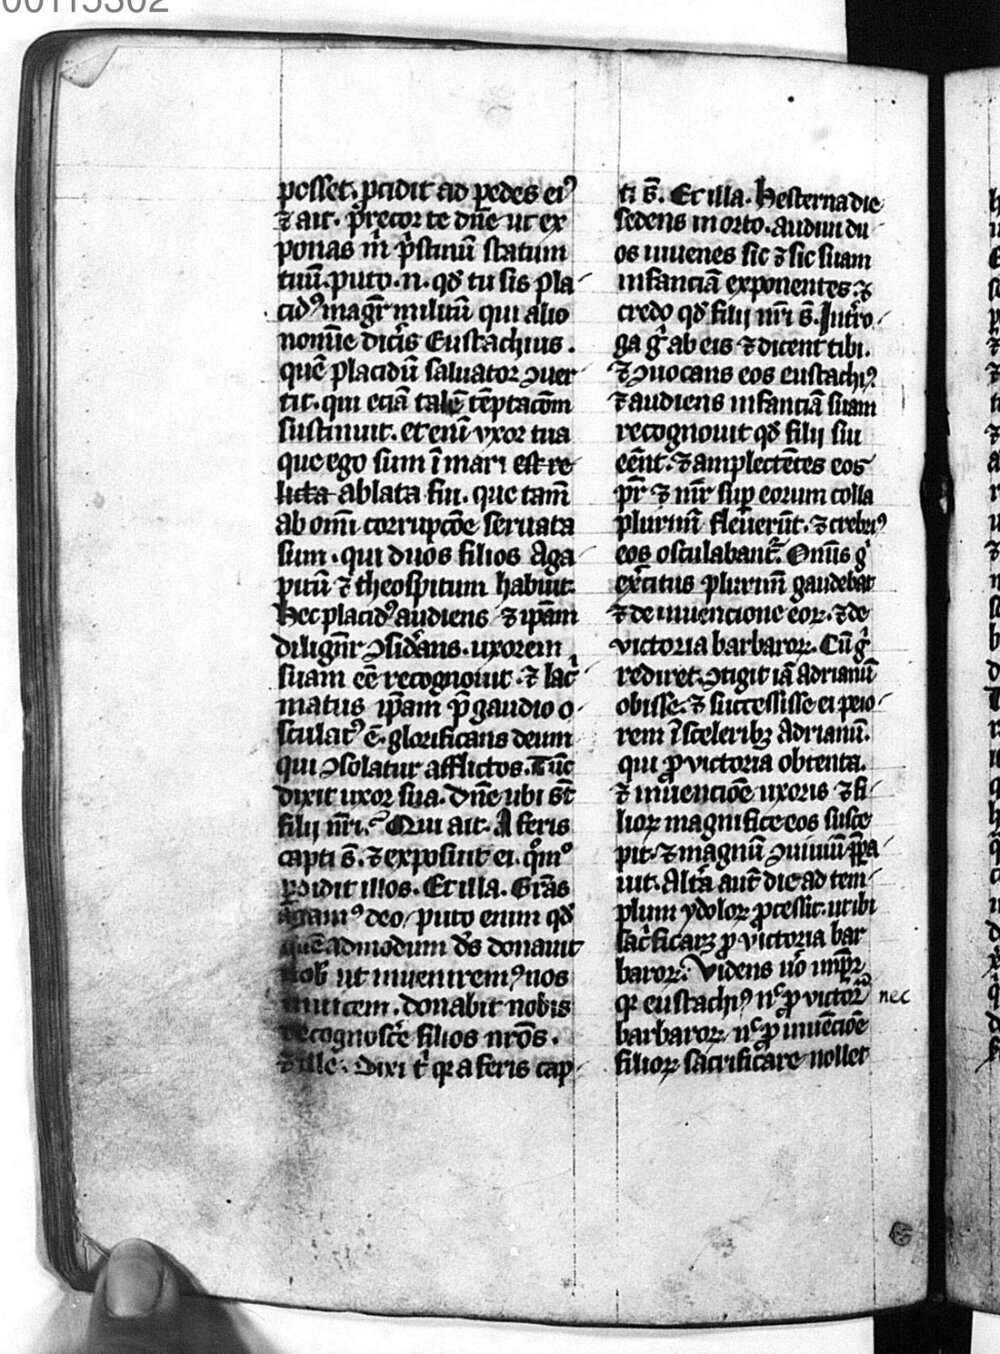 00115302
posset. p̄cidit ad pedes ei⁹
⁊ ait. p̄recor te dn̄e ut ex
ponas m̄ p̄stinū statum
tuū. puto .n. qd̄ tu sis pla-
cid⁹ magr̄ militū qui alio
nomīe dicīs Eustachius.
quē placidū saluator ꝯuer
tit. qui eciā talē tēptacōm
sustinuit. et enī vxor tua
que ego sum ī mari est re-
licta ablata fui. que tam̄
ab omī corrupcōe seruata
sum. qui duos filios Aga
pitū ⁊ theospitum habuit.
Hec placid⁹ audiens ⁊ ip̄am
dilign̄r ꝯsid̄ans. uxorem
suam eē recognouit. ⁊ lac̉
matus ip̄am p̄ gaudio o-
sculat⁹ ē. glorificans deum
qui ꝯsolatur afflictos. Tūc
dixit uxor sua. Dn̄e ubi st̄
filij nr̄i. Qui ait. A feris
capti s̄. ⁊ exposuit ei. qͦmͦ
ꝑdidit illos. Et illa. Grās
agam⁹ deo. puto enim qd̄
quēadmodum ds̄ donauit
nob̄ ut inuenirem⁹ nos
inuicem. donabit nobis
recognoscē filios nr̄os.
⁊ ille. Dixi t̉ qꝛ a feris cap-
ti s̄. Et illa. Hesterna die
sedens in orto. audiui du
os iuuenes sic ⁊ sic suam
infanciā exponentes. ⁊
credo qd̄ filij nr̄i s̄. Int̄ro-
ga g̉ ab eis ⁊ dicent tibi.
⁊ ꝯuocans eos eustachi⁹
⁊ audiens infanciā suam
recognouit qd̄ filij sui
eēnt. ⁊ amplectētes eos
pr̄ ⁊ mr̄ suꝑ eorum colla
plurimū fleuerūt. ⁊ crebri⁹
eos osculabant̄. Om̄is g̉
exc̄itus plurimū gaudebat
⁊ de inuencione eoꝝ. ⁊ de
victoria barbaroꝝ. Cū g̉
rediret. ꝯtigit iā Adrianū
obisse. ⁊ successisse ei peio-
rem ī sceleribꝫ Adrianū.
qui p̄ victoria obtenta.
⁊ inuencōe uxoris ⁊ fi-
lioꝝ magnifice eos susce
pit. ⁊ magnū ꝯuiuiū p̄pa-
uit. Altā aut̄ die ad tem-
plum ydoloꝝ ꝓcessit. ut ibi
sac̉ficarꝫ ꝓ victoria bar
baroꝝ. Videns uͦ imp̄r
qꝛ eustachi⁹ nͨ ꝓ victoͬ nec
barbaroꝝ nͨ ꝓ inuēcōe
filioꝝ sacrificare nollet